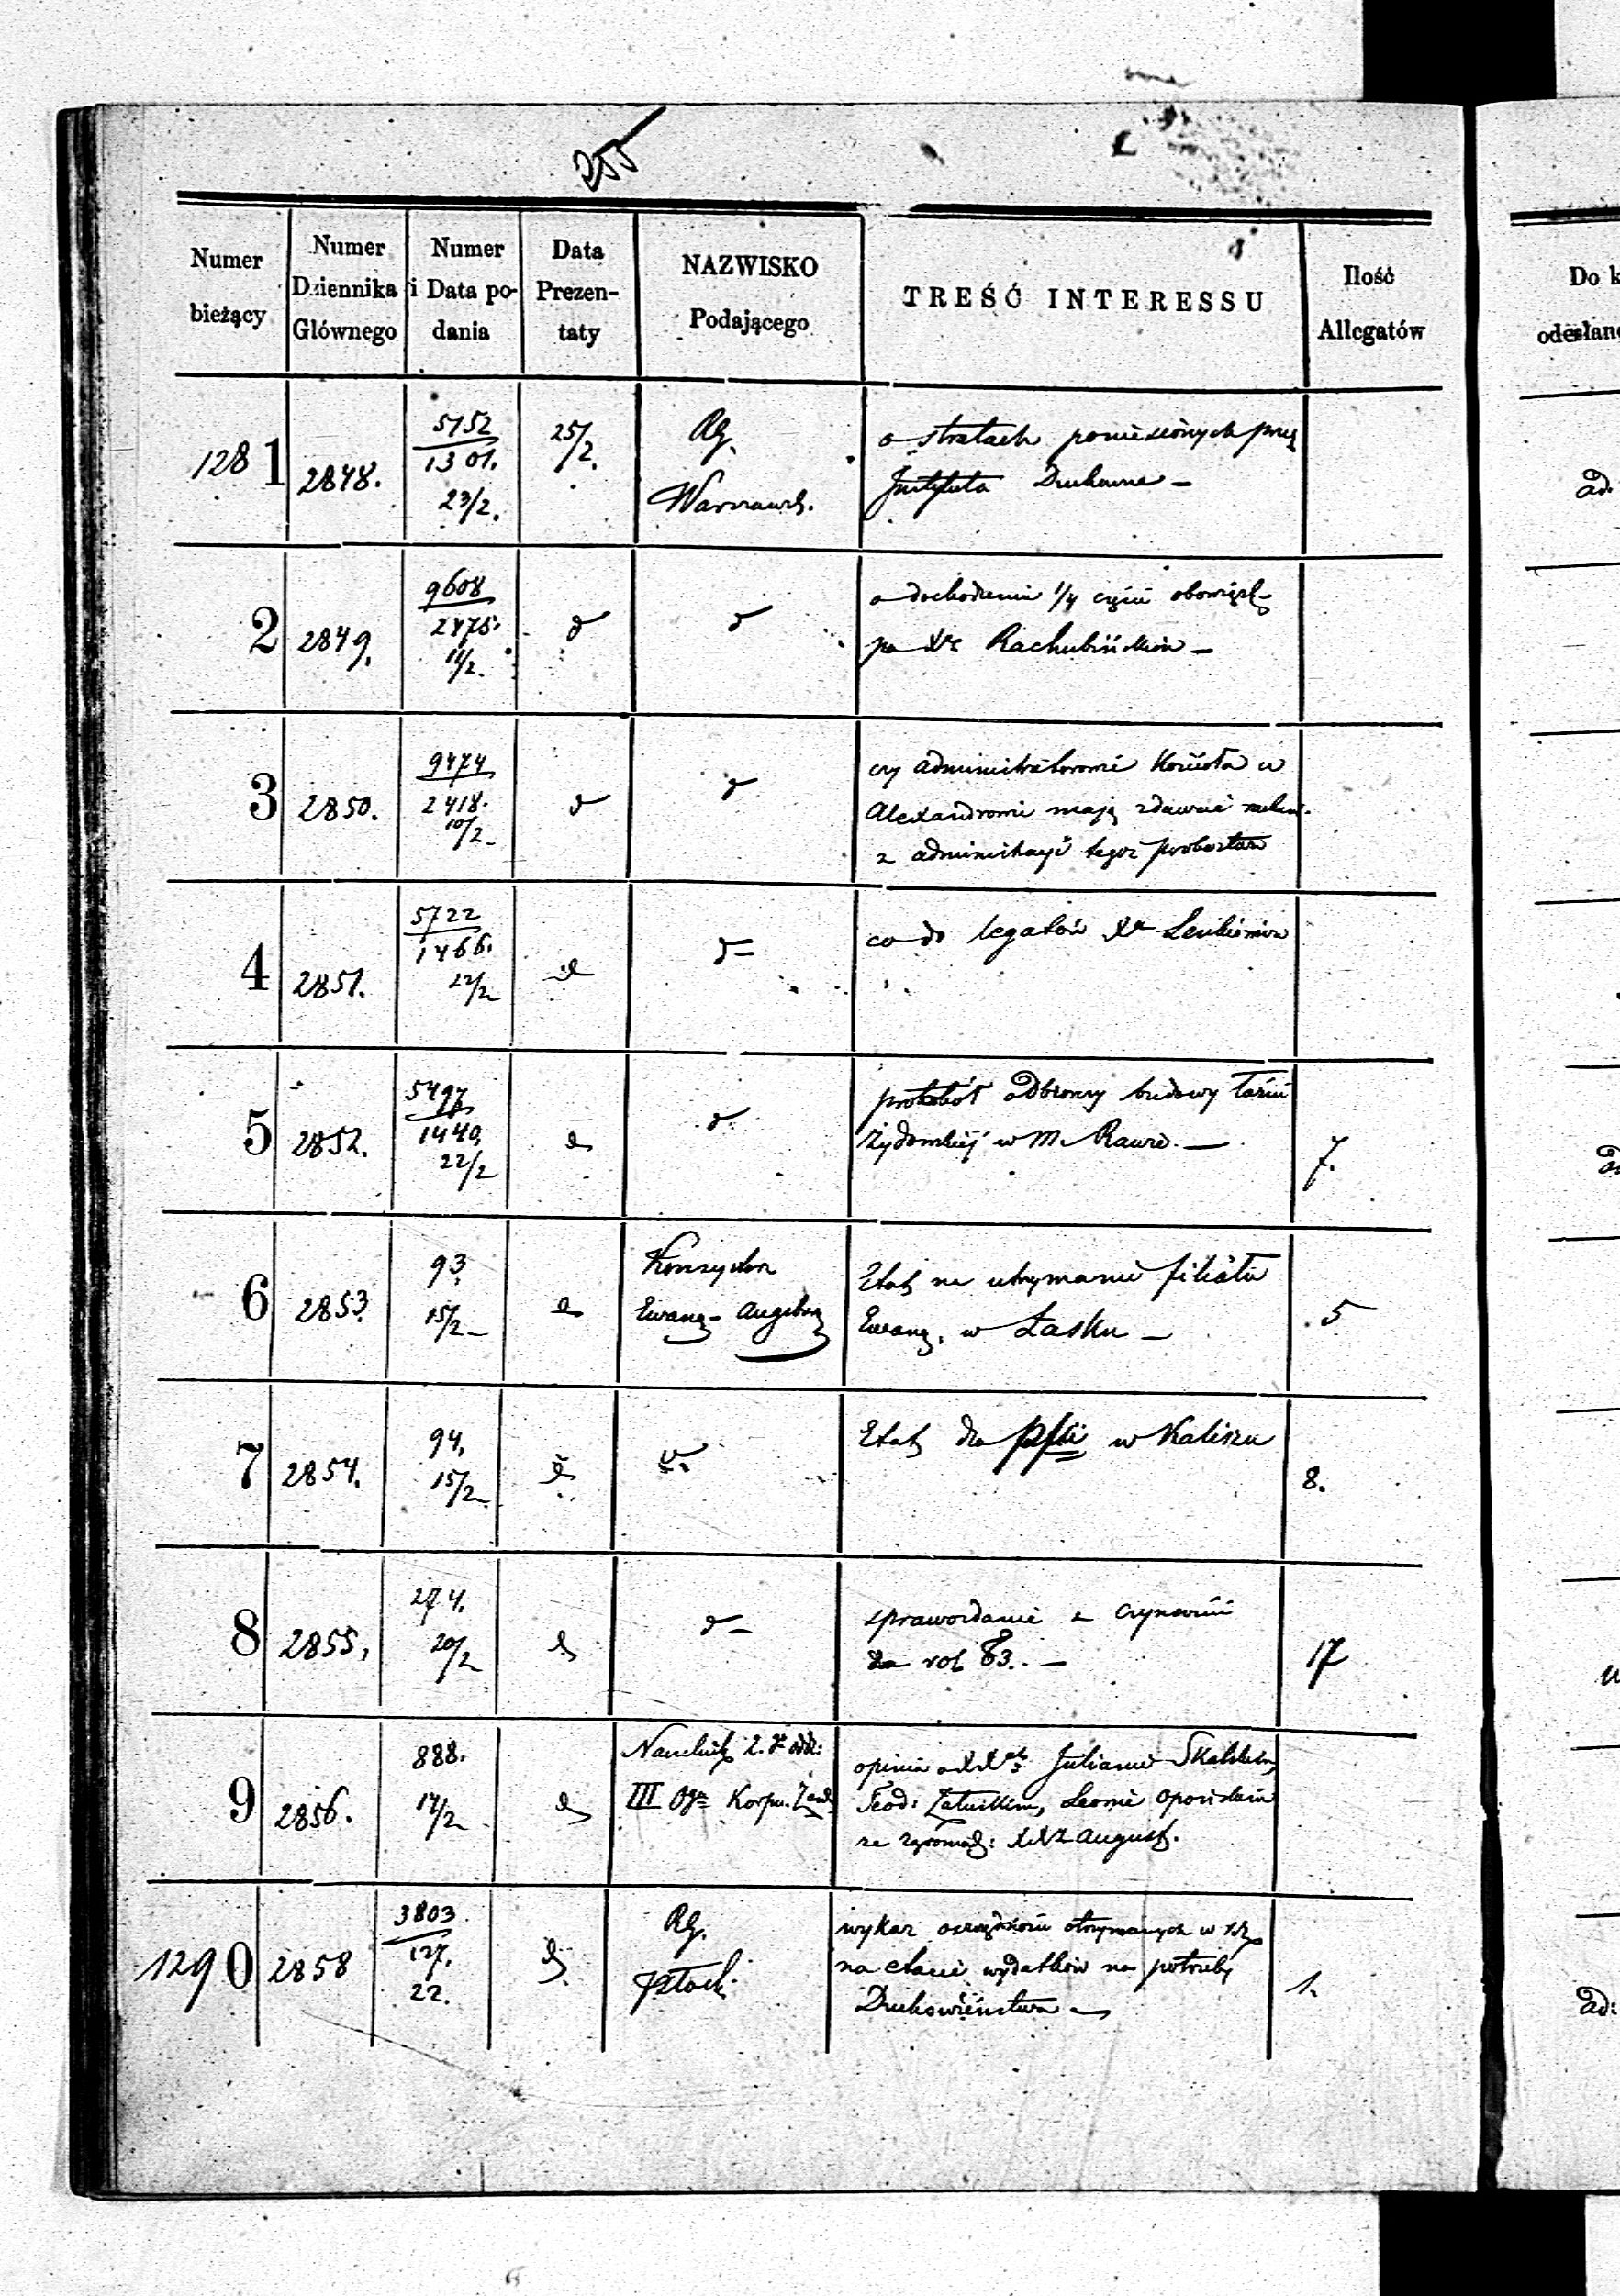 255
Numer bieżący
Numer Dziennika Głównego
Numer i Data podania
Data Prezentaty
NAZWISKO Podającego
TREŚĆ INTERESSU
Ilość Allegatów
Do k
odesłano
1281
2848.
5152
1301.
23/2.
25/2.
RG.
Warszawsk.
o stratach poniesionych przez
Instytuta Duchowne –
ad.
2
2849.
9608
2475.
11/2.
d
d
o dochodzeniu 1/4 części obowiązk
po Xdz Rachubińskim –
3
2850.
9474
2418.
10/2
d
d
czy administratorowie Kościoła w
Alexandrowie mają zdawać
z administracyi tegoż probostwa
4
2851.
5722
1466.
22/2
d
d =
co do legatów Xa
5
2852.
5497
1440.
22/2
d
d
protokół odbiorczy budowy łaźni
żydowskiej w m. Rawie. —
7.
6
2853.
93
15/2 –
d
Konsystorz
Ewang – Augsburg
Etat na utrzymanie filiału
Ewang. w Łasku –
5
7
2854.
94.
15/2
d
d
Etat dla pfii w Kaliszu
8.
8
2855.
274.
20/2
d
d –
sprawozdanie z czynności
za rok 63. –
17
9
2856.
888.
17/2
d
Naczelnik 2. go odd:
III Ogu Korpu. Żand
opinia o XX Julianie
Teod: Leonie
ze zgromadz: XX August.
1290
2858
3803
127.
22.
d
RG.
Płock.
wykaz oszczędności otrzymanych w
na etacie wydatków na potrzeby
Duchowieństwa –
1.
ad: